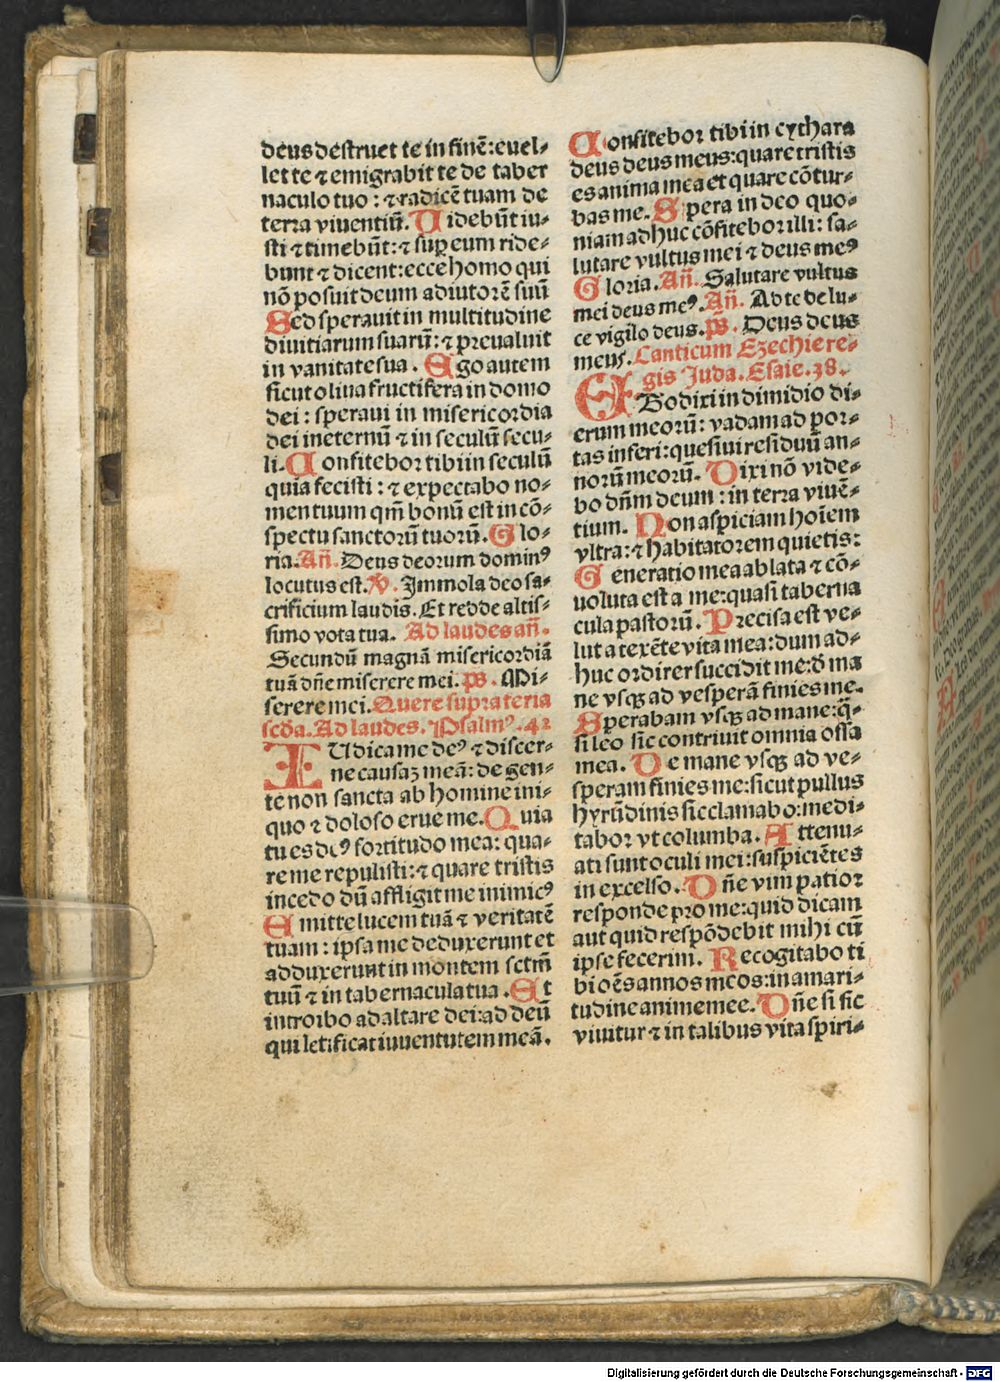 deus destruet te in finē: euel-
let te ⁊ emigrabit te de taber
naculo tuo: ⁊ radicē tuam de
terra viuentiū. Uidebūt iu-
sti ⁊ timebūt: ⁊ suꝑ eum ride-
bunt ⁊ dicent: ecce homo qui
nō posuit deum adiutorē suū
Sed sperauit in multitudine
diuitiarum suarū: ⁊ preualuit
in vanitate sua. Ego autem
sicut oliua fructifera in domo
dei: speraui in misericordia
dei ineternū ⁊ in seculū secu-
li. Confitebor tibi in seculū
quia fecisti: ⁊ expectabo no-
men tuum qm̄ bonū est in cō-
spectu sanctorū tuorū. Glo-
ria. Añ. Deus deorum dominꝰ
locutus est. ℣. Immola deo sa-
crificium laudis. Et redde altis-
simo vota tua. Ad laudes añ.
Secundū magnā misericordiā
tuā dñe miserere mei. ps̄. Mi-
serere mei. Quere supra feria
scd̄a. Ad laudes. Psalmꝰ. 42
IUdica me deꝰ ⁊ discer-
ne causaꝫ meā: de gen-
te non sancta ab homine ini-
quo ⁊ doloso erue me. Quia
tu es deꝰ fortitudo mea: qua-
re me repulisti: ⁊ quare tristis
incedo dū affligit me inimicꝰ
Emitte lucem tuā ⁊ veritatē
tuam: ipsa me deduxerunt et
adduxerunt in montem sctm̄
tuū ⁊ in tabernacula tua. Et
introibo ad altare dei: ad deū
qui letificat iuuentutem meā.
Confitebor tibi in cythara
deus deus meus: quare tristis
es anima mea et quare cōtur-
bas me. Spera in deo quo-
niam adhuc cōfitebor illi: sa-
lutare vultus mei ⁊ deus meꝰ
Gloria. Añ. Salutare vultus
mei deus meꝰ. Añ. Ad te de lu-
ce vigilo deus. ps̄. Deus deus
meus. Canticum Ezechie re-
gis Juda. Esaie. 38.
EGo dixi in dimidio di-
erum meorū: vadam ad por-
tas inferi: quesiui residuū an-
norū meorū. Dixi nō vide-
bo dñm deum: in terra viuē-
tium. Non aspiciam hoīem
vltra: ⁊ habitatorem quietis:
Generatio mea ablata ⁊ cō-
uoluta est a me: quasi taberna
cula pastorū. Precisa est ve-
lut a texēte vita mea: dum ad-
huc ordirer succidit me: đ ma
ne vsqꝫ ad vesperā finies me.
Sperabam vsqꝫ ad mane: q̄-
si leo sic contriuit omnia ossa
mea. De mane vsqꝫ ad ve-
speram finies me: sicut pullus
hyrūdinis sic clamabo: medi-
tabor vt columba. Attenu-
ati sunt oculi mei: suspiciētes
in excelso. Dñe vim patior
responde pro me: quid dicam
aut quid respōdebit mihi cū
ipse fecerim. Recogitabo ti
bi oēs annos meos: in amari-
tudine anime mee. Dñe si sic
viuitur ⁊ in talibus vita spiri-
Digitalisierung gefördert durch die Deutsche Forschungsgemeinschaft - DFG